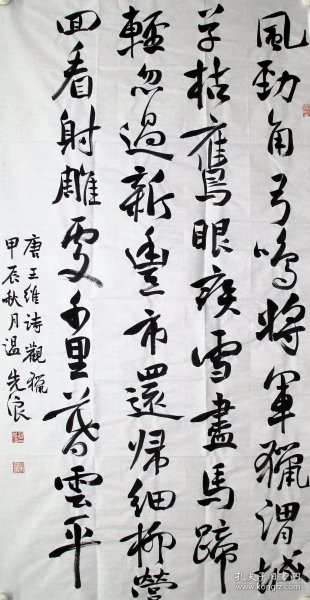 風勁角弓鳴將軍獵渭城
草枯鷹眼疾雪盡馬蹄
輕忽過新豐市還歸細柳營
回看射雕處千里暮雲平
唐王維詩觀獵
甲辰秋月溫先浪
孔夫子旧书网